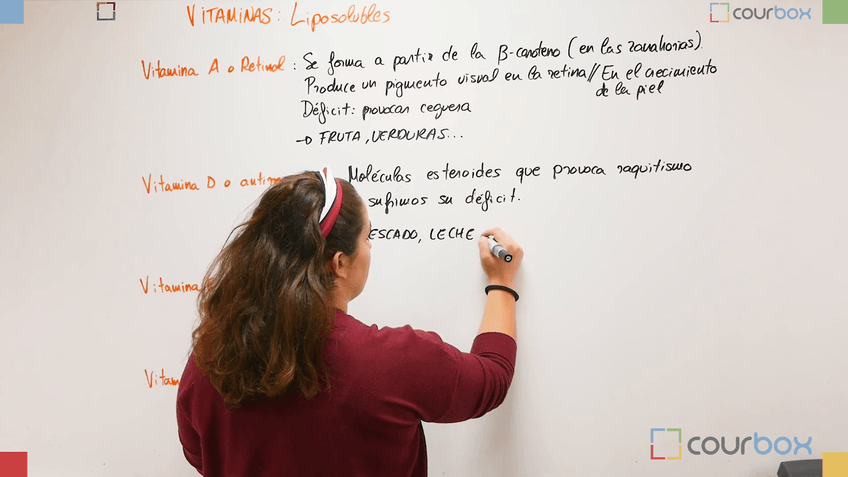 VITAMINAS: Liposolubles
courbox
Vitamina A o Retinol: Se forma a partir de la β-caroteno (en las zanahorias).
Produce un pigmento visual en la retina // En el crecimiento
de la piel
Déficit: provocar ceguera
→ FRUTA, VERDURAS...
Vitamina D o Moléculas esteroides que provoca raquitismo
sufrimos su déficit.
ESCADO, LECHE
Vitamina
Vitam
courbox